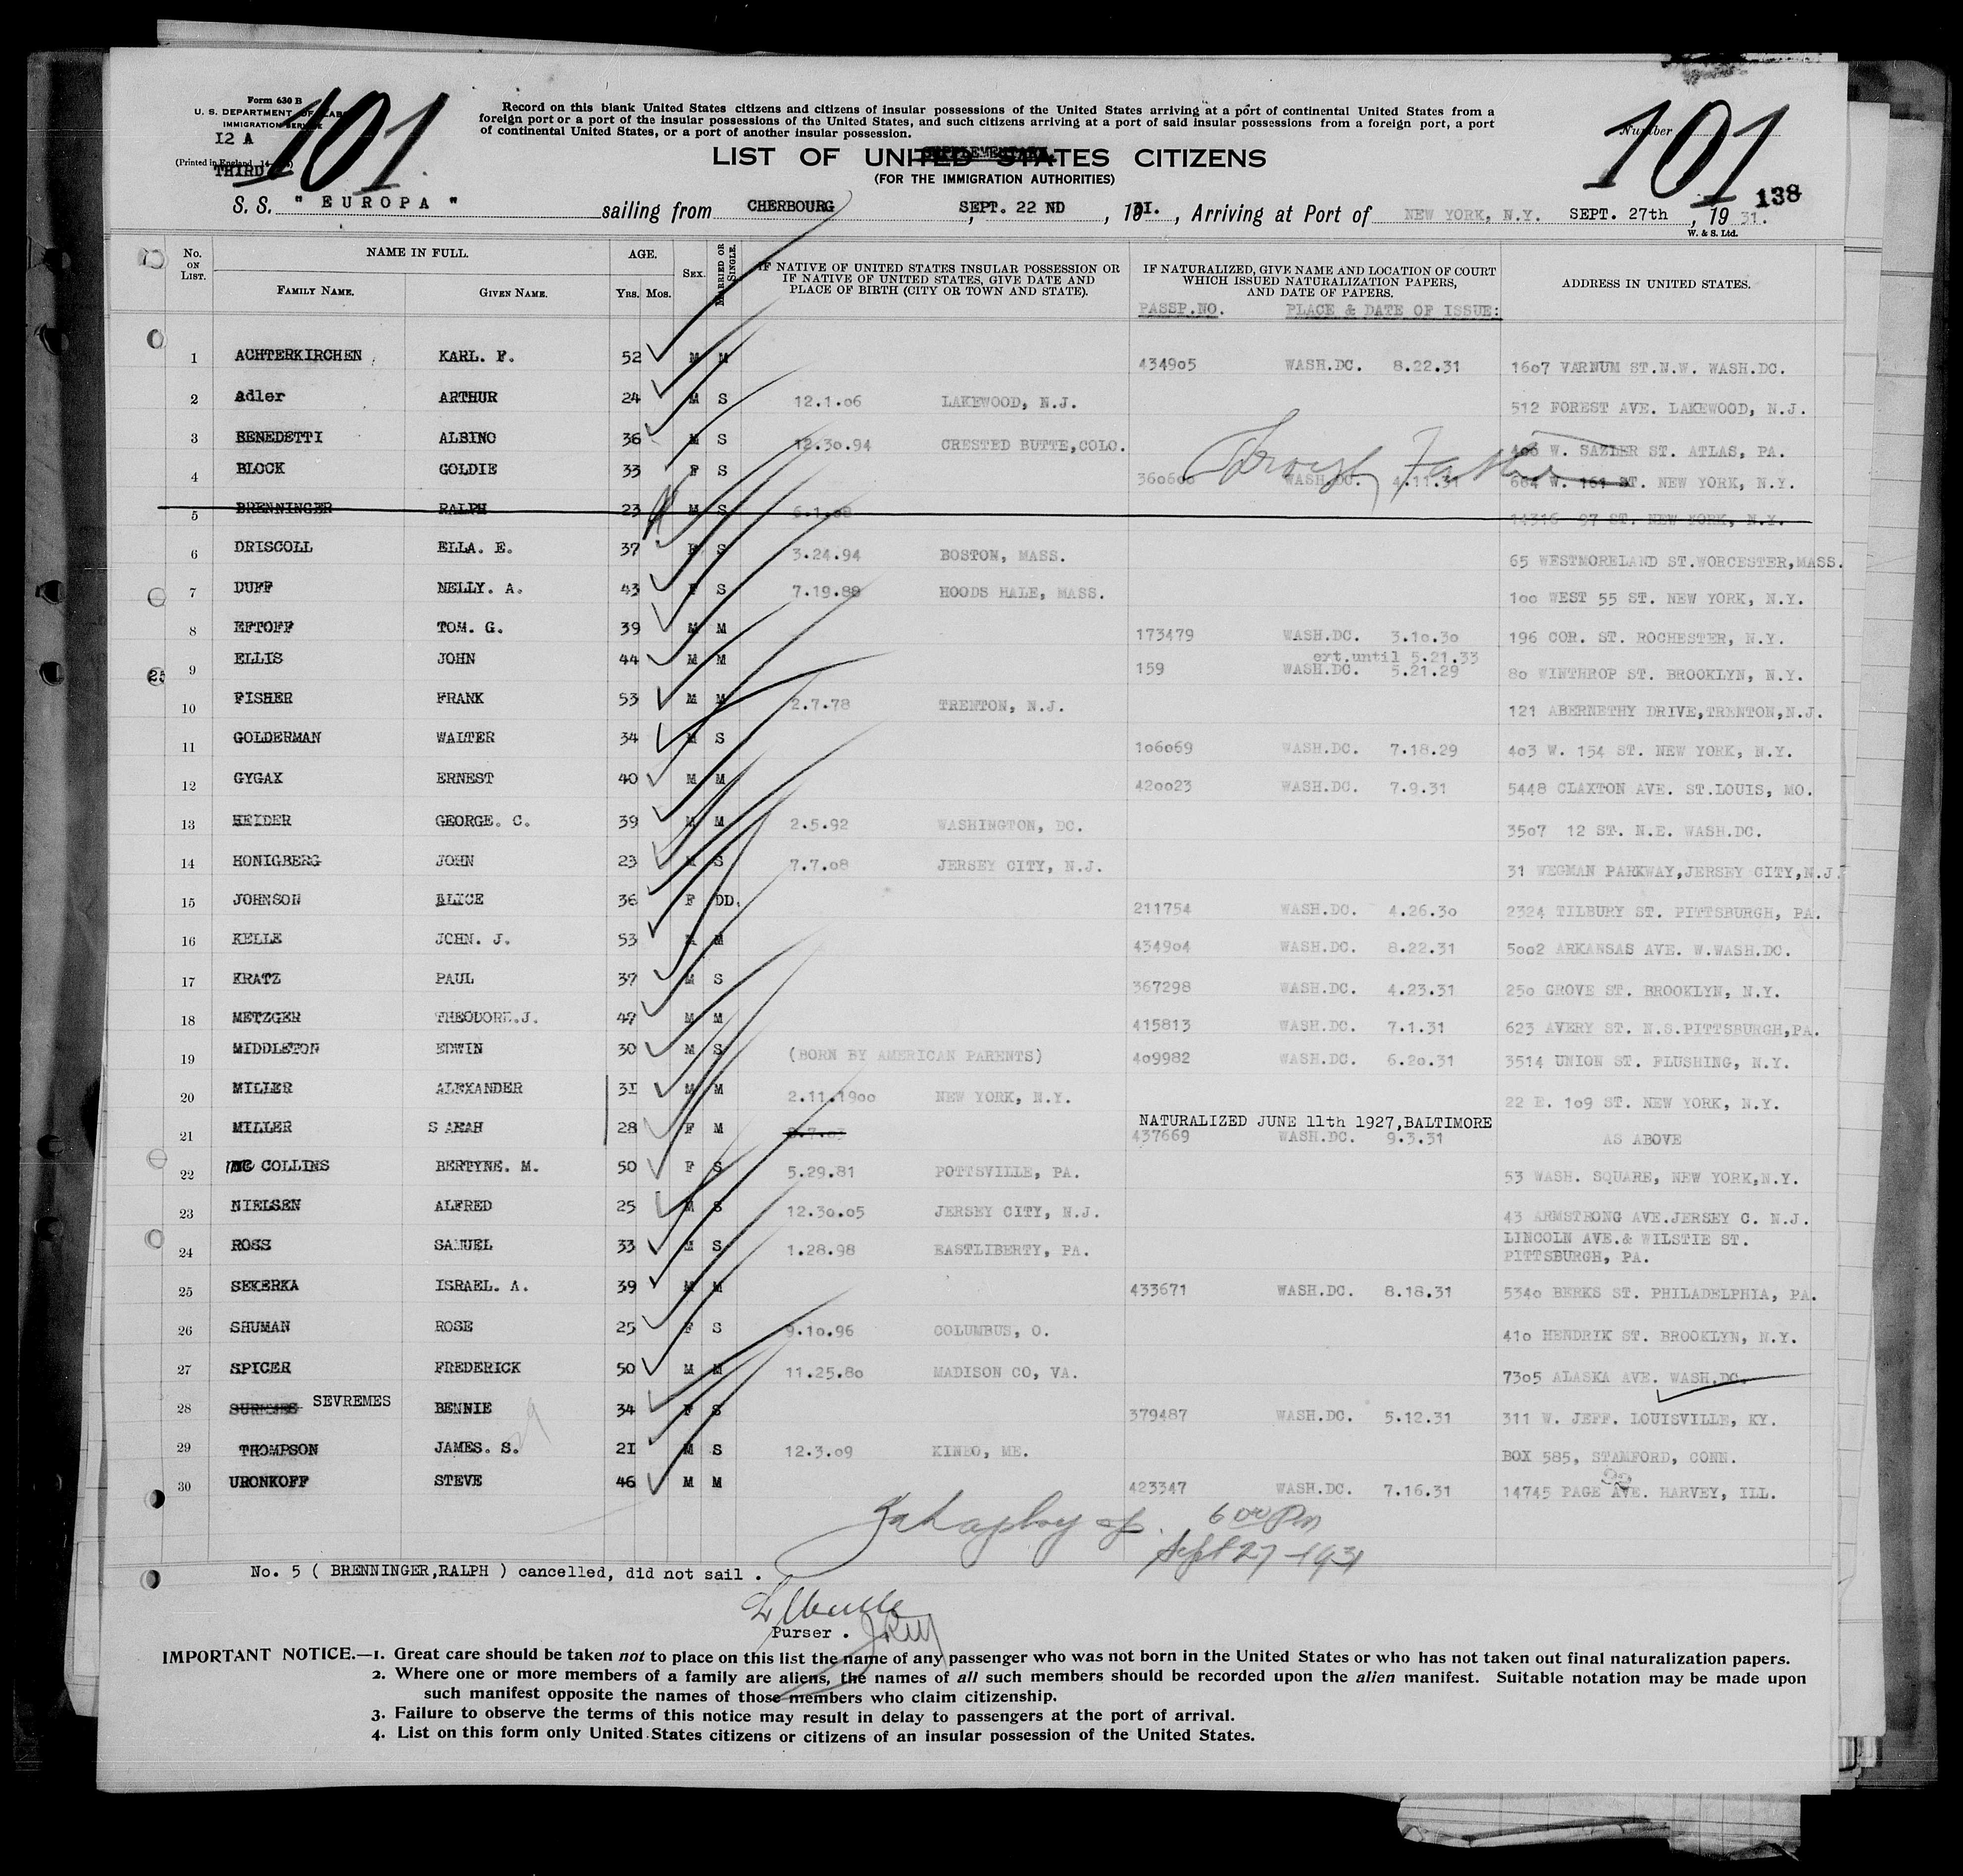 Form 630 B
U. S. DEPARTMENT OF LABOR
IMMIGRATION SERVICE
12 A
(Printed in England
THIRD
101
Record on this blank United States citizens and citizens of insular possessions of the United States arriving at a port of continental United States from a
foreign port or a port of the insular possessions of the United States, and such citizens arriving at a port of said insular possessions from a foreign port, a port
of continental United States, or a port of another insular possession.
SUPPLEMENTARY
LIST OF UNITED STATES CITIZENS
(FOR THE IMMIGRATION AUTHORITIES)
Number
101
138
S. S. " EUROPA " sailing from CHERBOURG, SEPT. 22 ND, 1931., Arriving at Port of NEW YORK, N.Y. SEPT. 27th, 19 31.
W. & S. Ltd.
No. ON LIST. NAME IN FULL. FAMILY NAME. GIVEN NAME. AGE. Yrs. Mos. SEX. MARRIED OR SINGLE. IF NATIVE OF UNITED STATES INSULAR POSSESSION OR IF NATIVE OF UNITED STATES, GIVE DATE AND PLACE OF BIRTH (CITY OR TOWN AND STATE). IF NATURALIZED, GIVE NAME AND LOCATION OF COURT WHICH ISSUED NATURALIZATION PAPERS, AND DATE OF PAPERS. ADDRESS IN UNITED STATES.
PASSP.NO. PLACE & DATE OF ISSUE:
1 ACHTERKIRCHEN KARL. F. 52 M M 434905 WASH.DC. 8.22.31 1607 VARNUM ST.N.W. WASH.DC.
2 Adler ARTHUR 24 M S 12.1.06 LAKEWOOD, N.J. 512 FOREST AVE. LAKEWOOD, N.J.
3 BENEDETTI ALBINO 36 M S 12.30.94 CRESTED BUTTE,COLO. 406 W. SAZLER ST. ATLAS, PA.
4 BLOCK GOLDIE 33 F S 360600 WASH.DC. 4.11.31 664 W. 161 ST. NEW YORK, N.Y.
Through Father
5 BRENNINGER RALPH 23 M S 6.1.08 14316 97 ST. NEW YORK, N.Y.
6 DRISCOLL ELLA. E. 37 F S 3.24.94 BOSTON, MASS. 65 WESTMORELAND ST.WORCESTER,MASS.
7 DUFF NELLY. A. 43 F S 7.19.88 HOODS HALE, MASS. 100 WEST 55 ST. NEW YORK, N.Y.
8 EFTOFF TOM. G. 39 M M 173479 WASH.DC. 3.10.30 196 COR. ST. ROCHESTER, N.Y.
ext.until 5.21.33
9 ELLIS JOHN 44 M M 159 WASH.DC. 5.21.29 80 WINTHROP ST. BROOKLYN, N.Y.
10 FISHER FRANK 53 M M 2.7.78 TRENTON, N.J. 121 ABERNETHY DRIVE,TRENTON,N.J.
11 GOLDERMAN WALTER 34 M S 106069 WASH.DC. 7.18.29 403 W. 154 ST. NEW YORK, N.Y.
12 GYGAX ERNEST 40 M M 420023 WASH.DC. 7.9.31 5448 CLAXTON AVE. ST.LOUIS, MO.
13 HEIDER GEORGE. C. 39 M M 2.5.92 WASHINGTON, DC. 3507 12 ST. N.E. WASH.DC.
14 HONIGBERG JOHN 23 M S 7.7.08 JERSEY CITY, N.J. 31 WEGMAN PARKWAY,JERSEY CITY,N.J.
15 JOHNSON ALICE 36 F DD. 211754 WASH.DC. 4.26.30 2324 TILBURY ST. PITTSBURGH, PA.
16 KELLE JOHN. J. 53 M M 434904 WASH.DC. 8.22.31 5002 ARKANSAS AVE. W.WASH.DC.
17 KRATZ PAUL 37 M S 367298 WASH.DC. 4.23.31 250 GROVE ST. BROOKLYN, N.Y.
18 METZGER THEODORE.J. 47 M M 415813 WASH.DC. 7.1.31 623 AVERY ST. N.S.PITTSBURGH,PA.
19 MIDDLETON EDWIN 30 M S (BORN BY AMERICAN PARENTS) 409982 WASH.DC. 6.20.31 3514 UNION ST. FLUSHING, N.Y.
20 MILLER ALEXANDER 31 M M 2.11.1900 NEW YORK, N.Y. 22 E. 109 ST. NEW YORK, N.Y.
NATURALIZED JUNE 11th 1927,BALTIMORE
21 MILLER SARAH 28 F M 8.7.03 437669 WASH.DC. 9.3.31 AS ABOVE
22 Mc COLLINS BERTYNE. M. 50 F S 5.29.81 POTTSVILLE, PA. 53 WASH. SQUARE, NEW YORK,N.Y.
23 NIELSEN ALFRED 25 M S 12.30.05 JERSEY CITY, N.J. 43 ARMSTRONG AVE.JERSEY C. N.J.
24 ROSS SAMUEL 33 M S 1.28.98 EASTLIBERTY, PA. LINCOLN AVE.& WILSTIE ST.
PITTSBURGH, PA.
25 SEKERKA ISRAEL. A. 39 M M 433671 WASH.DC. 8.18.31 5340 BERKS ST. PHILADELPHIA, PA.
26 SHUMAN ROSE 25 F S 9.10.96 COLUMBUS, O. 410 HENDRIK ST. BROOKLYN, N.Y.
27 SPICER FREDERICK 50 M M 11.25.80 MADISON CO, VA. 7305 ALASKA AVE. WASH.DC.
28 SEVREMES BENNIE 34 F S 379487 WASH.DC. 5.12.31 311 W. JEFF. LOUISVILLE, KY.
29 THOMPSON JAMES. S. 21 M S 12.3.09 KINEO, ME. BOX 585, STAMFORD, CONN.
30 URONKOFF STEVE 46 M M 423347 WASH.DC. 7.16.31 14745 PAGE AVE. HARVEY, ILL.
6 00 Pm
Sept 27-1931
No. 5 ( BRENNINGER,RALPH ) cancelled, did not sail .
Purser .
IMPORTANT NOTICE.—1. Great care should be taken not to place on this list the name of any passenger who was not born in the United States or who has not taken out final naturalization papers.
2. Where one or more members of a family are aliens, the names of all such members should be recorded upon the alien manifest. Suitable notation may be made upon
such manifest opposite the names of those members who claim citizenship.
3. Failure to observe the terms of this notice may result in delay to passengers at the port of arrival.
4. List on this form only United States citizens or citizens of an insular possession of the United States.